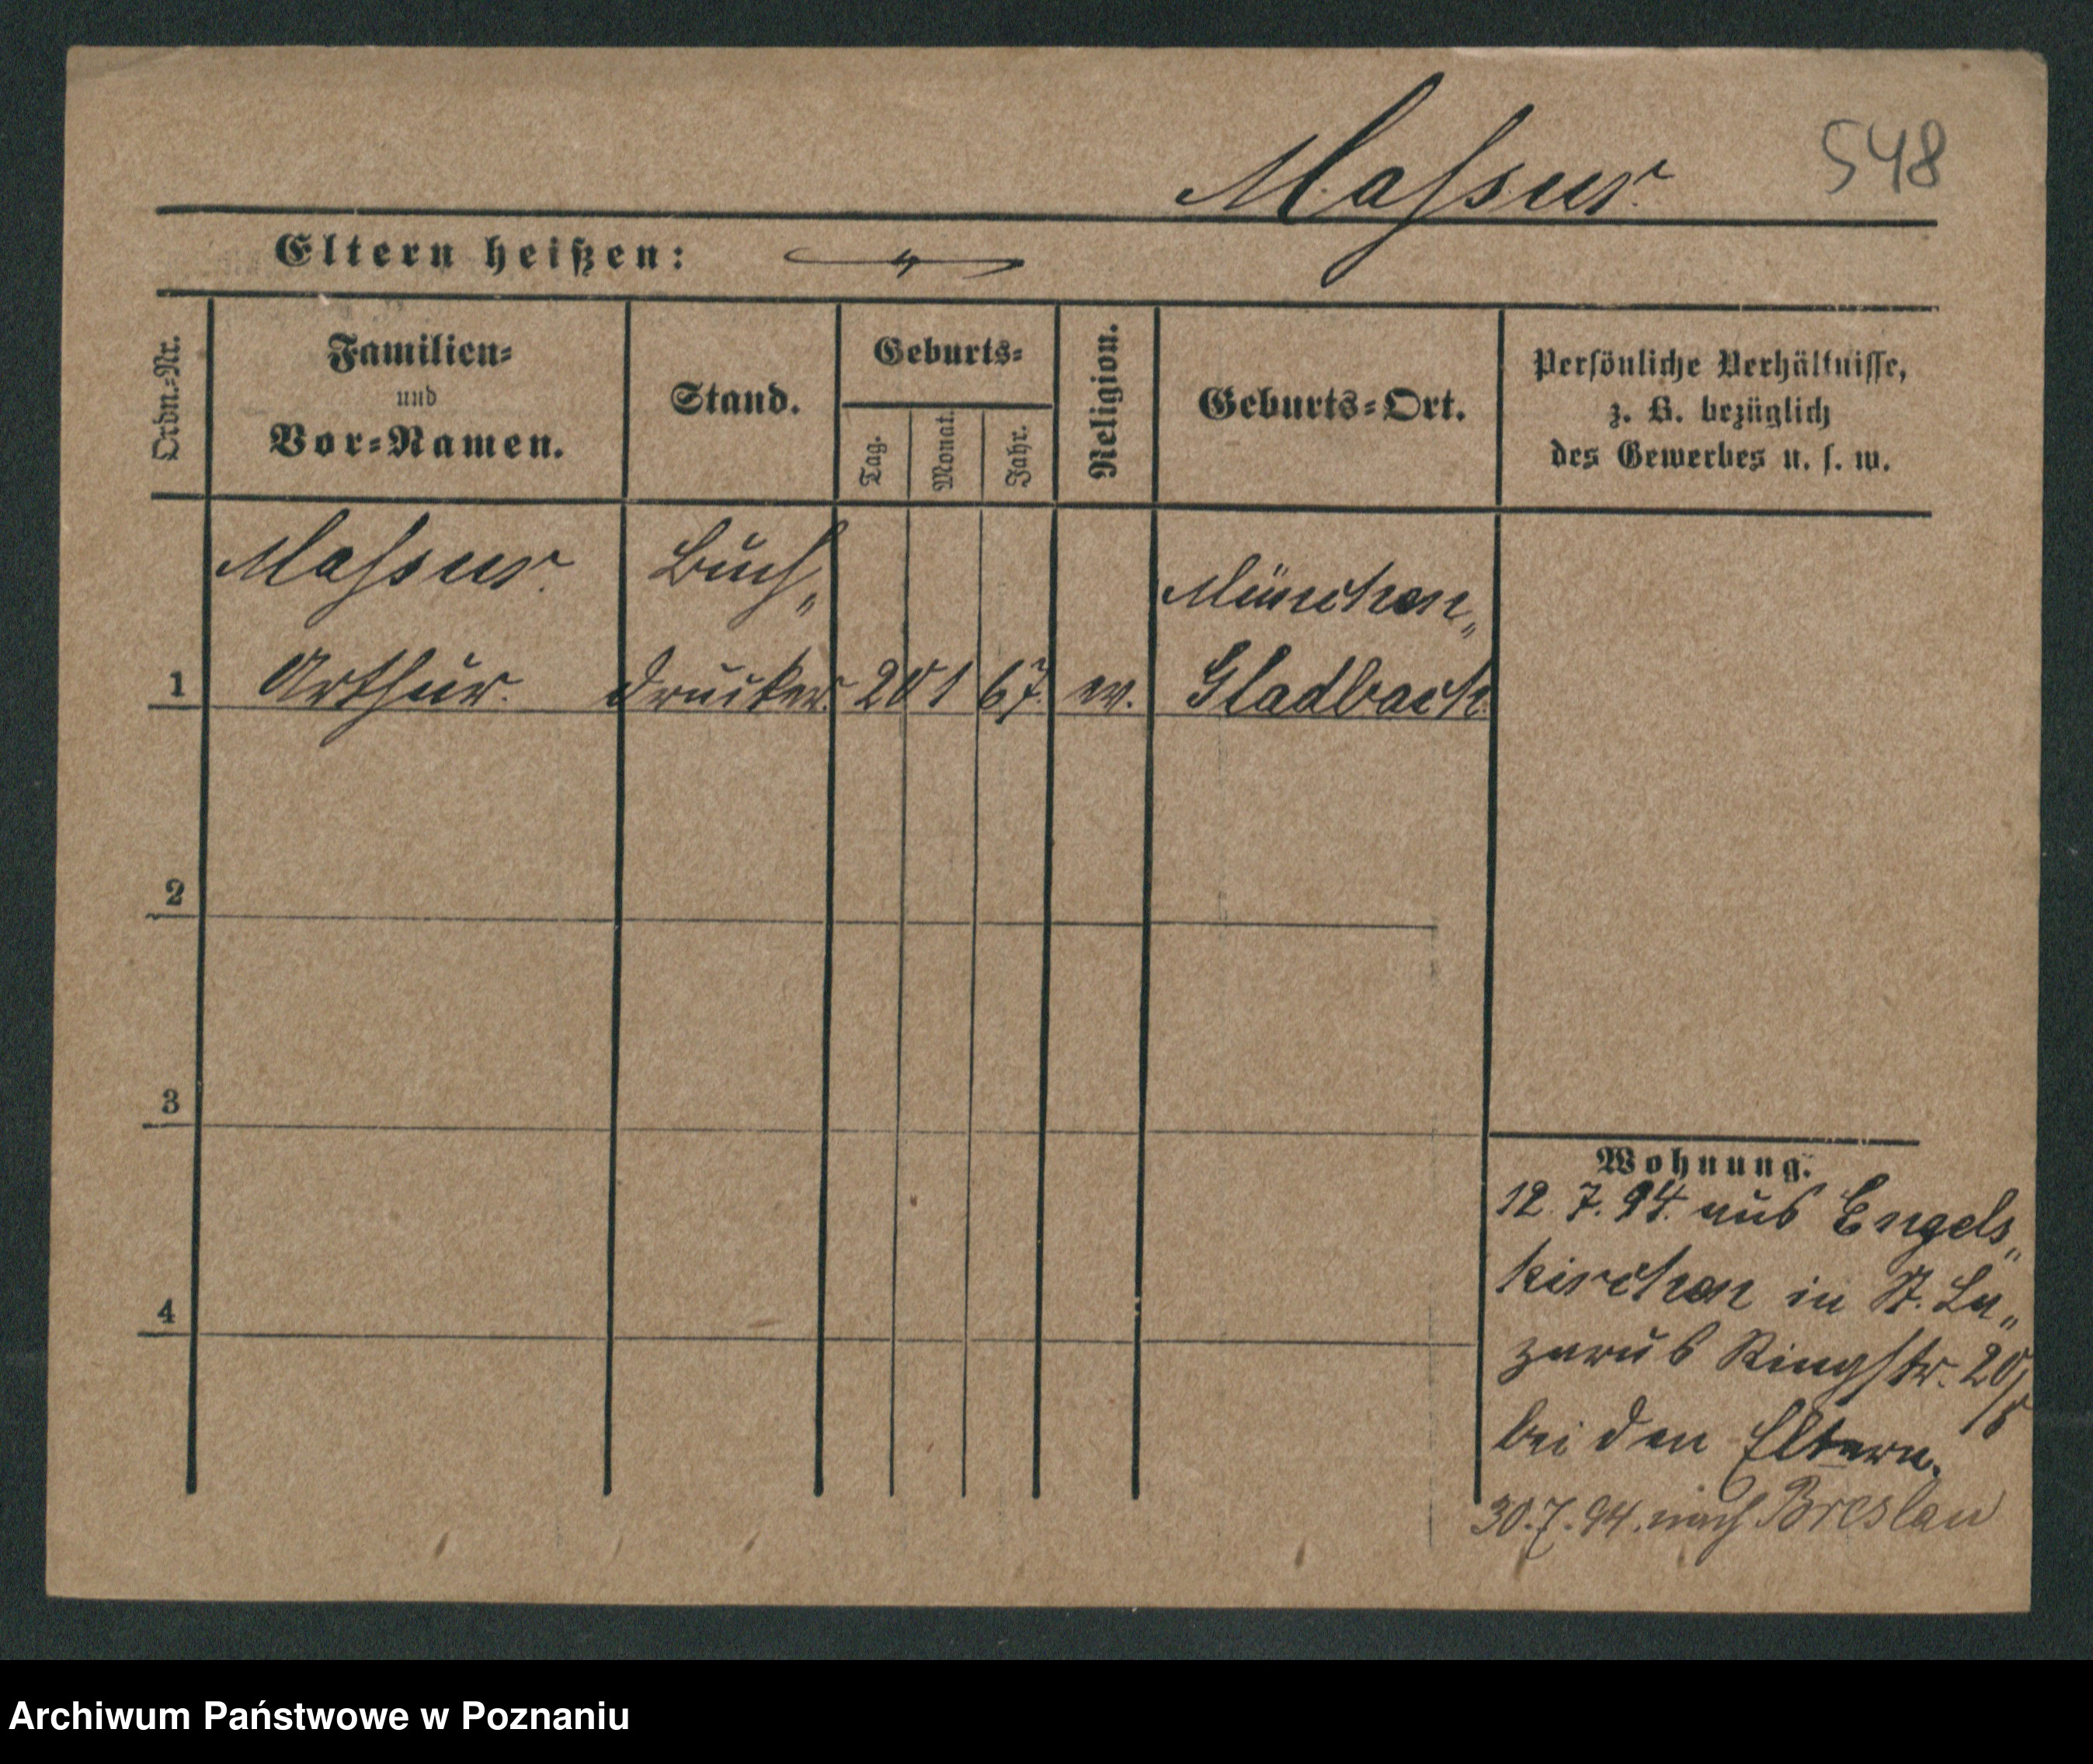 Massur.
548
Eltern heißen:
Ordn.-Nr.
Familien-
und
Vor-Namen.
Stand.
Geburts-
Tag.
Monat.
Jahr.
Religion.
Geburts-Ort.
Persönliche Verhältnisse,
z. B. bezüglich
des Gewerbes u. s. w.
Massur. Buch„ München„
1 Arthur. drucker. 20 1 67. ev. Gladbach.
2
3
4
Wohnung.
12. 7. 94. aus Engels„
kirchen in St. La„
zarus Ringstr. 20/
bei den Eltern.
30. 7. 94. nach Breslau
Archiwum Państwowe w Poznaniu